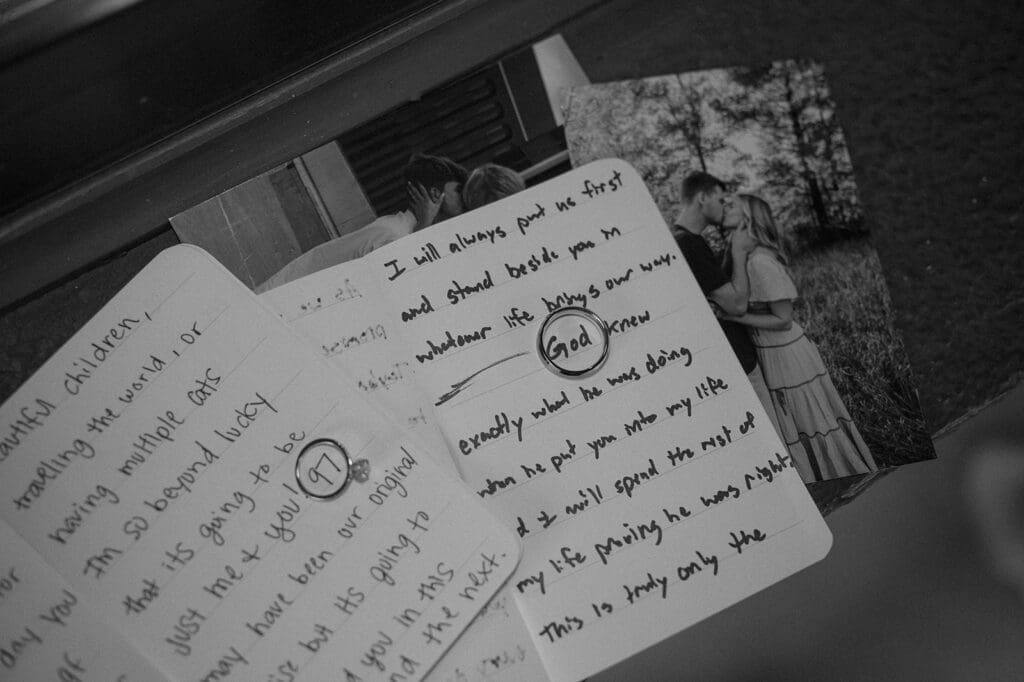 autiful children,
traveling the world, or
having multiple cats
I'm so beyond lucky
that its going to be
Just me & you! 97
may have been our original
ise but its going to
d you in this
nd the next.
or
day you
I will always put us first
and stand beside you in
whatever life brings our way.
God knew
exactly what he was doing
when he put you into my life
d I will spend the rest of
my life proving he was right.
This is truly only the